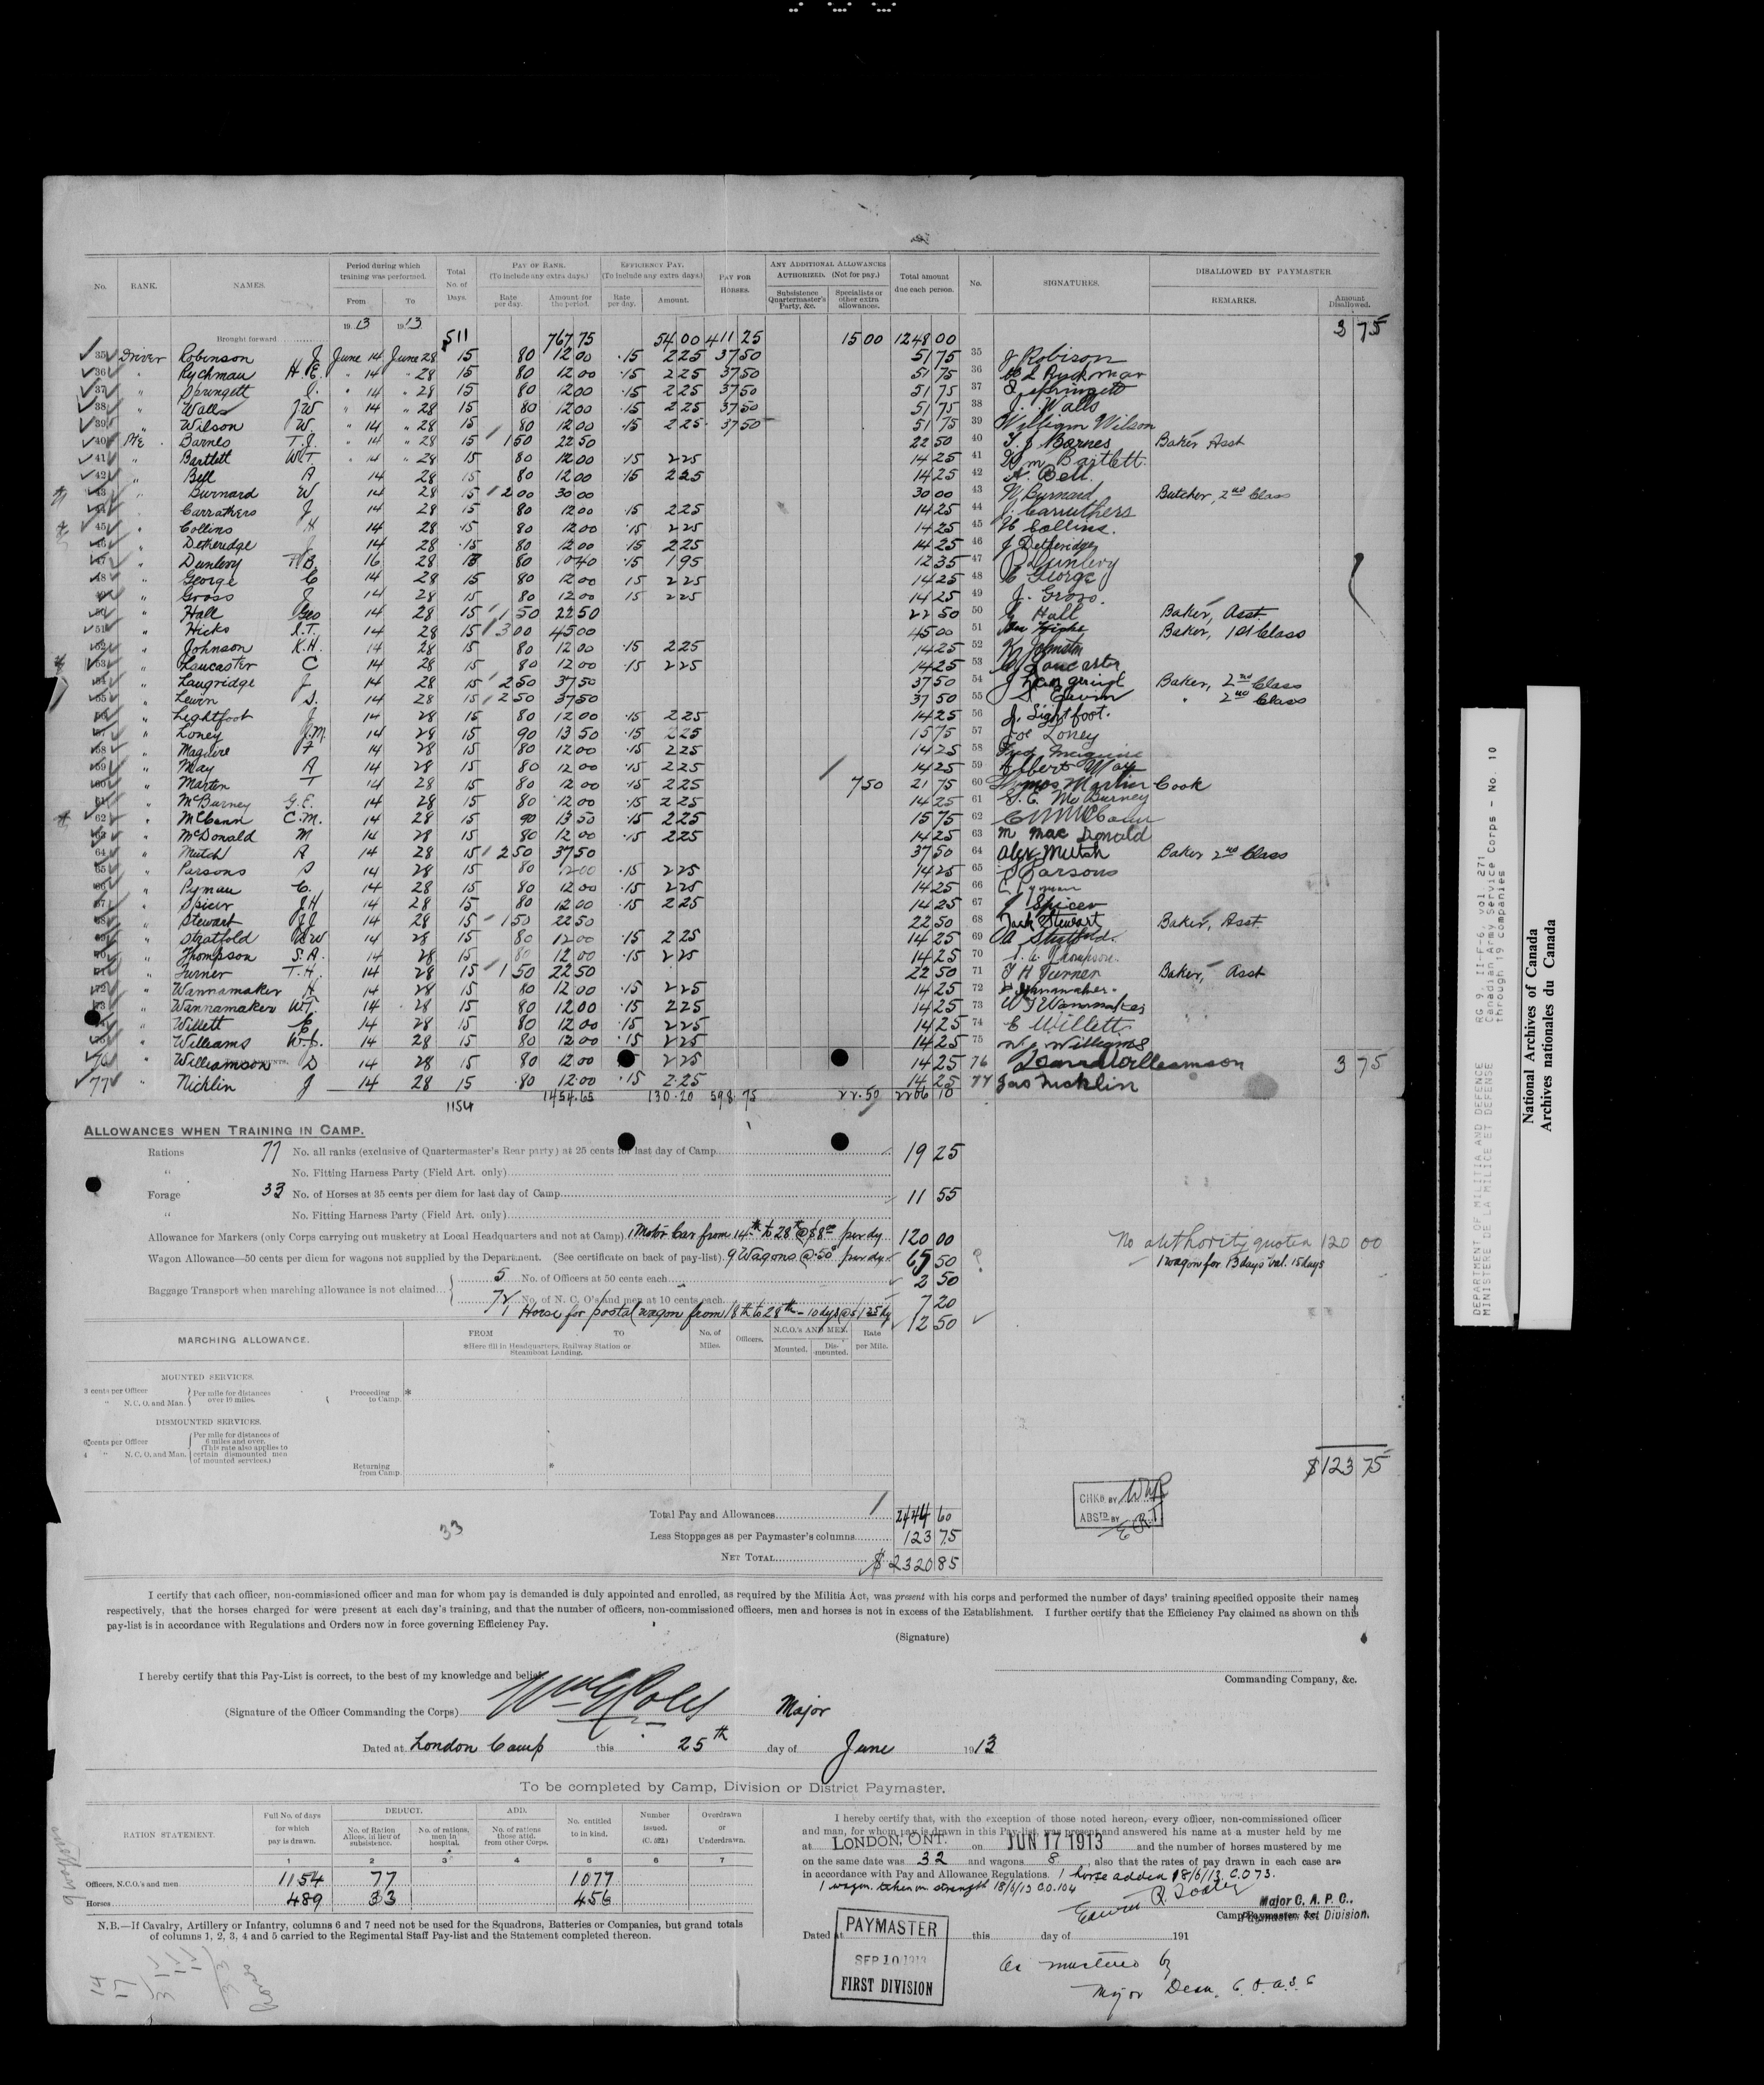 No. RANK. NAMES. Period during which training was performed. From To Total No. of Days. PAY OF RANK. (To include any extra days.) Rate per day. Amount for the period. EFFICIENCY PAY. (To include any extra days.) Rate per day. Amount. PAY FOR HORSES. ANY ADDITIONAL ALLOWANCES AUTHORIZED. (Not for pay.) Subsistence Quartermaster's Party, &c. Specialists or other extra allowances. Total amount due each person. No. SIGNATURES. DISALLOWED BY PAYMASTER REMARKS. Amount Disallowed.
1913 1913
Brought forward 511 767 75 54 00 411 25 15 00 1248 00 3 75
35 Driver Robinson J June 14 June 28 15 80 12 00 .15 2 25 37 50 51 75 35 J Robison
36 " Ryckman H.E. " 14 " 28 15 80 12 00 .15 2 25 37 50 51 75 36
37 " Springett " 14 " 28 15 80 12 00 .15 2 25 37 50 51 75 37
38 " Walls J W " 14 " 28 15 80 12 00 .15 2 25 37 50 51 75 38 J. Walls
39 " Wilson W. " 14 " 28 15 80 12 00 .15 2 25 37 50 51 75 39 William Wilson
40 Pte. Barnes T.J. " 14 " 28 15 1 50 22 50 22 50 40 T. J Barnes Baker Asst
41 " Bartlett W.T. " 14 " 28 15 80 12 00 .15 2 25 14 25 41 Wm Bartlett.
42 " Bell A 14 28 15 80 12 00 .15 2 25 14 25 42 A. Bell.
43 " Burnard W 14 28 15 2 00 30 00 30 00 43 W Burnard Butcher, 2nd Class
44 " Carrathers J 14 28 15 80 12 00 .15 2 25 14 25 44 J. Carruthers
45 " Collins H 14 28 15 80 12 00 .15 2 25 14 25 45 H Collins.
46 " Detheridge J 14 28 15 80 12 00 .15 2 25 14 25 46 J Detheridge
47 " Dunlevy F B. 16 28 13 80 10 40 .15 1 95 12 35 47 Dunlevy
48 " George C 14 28 15 80 12 00 15 2 25 14 25 48 C George
49 " Gross J 14 28 15 80 12 00 15 2 25 14 25 49 J. Gross.
50 " Hall Geo 14 28 15 1 50 22 50 22 50 50 G Hall Baker, Asst.
51 " Hicks 14 28 15 3 00 45 00 45 00 51 Baker, 1st Class
52 " Johnson K.H. 14 28 15 80 12 00 .15 2 25 14 25 52 K Johnston
53 " Lancaster C 14 28 15 80 12 00 .15 2 25 14 25 53 C Lancaster
54 " Laugridge J 14 28 15 2 50 37 50 37 50 54 Baker, 2nd Class
55 " Lewin S. 14 28 15 2 50 37 50 37 50 55 S Lewin " 2nd Class
56 " Lightfoot J 14 28 15 80 12 00 .15 2 25 14 25 56 J. Lightfoot.
57 " Loney J.M. 14 28 15 90 13 50 .15 2 25 15 75 57 Joe Loney
58 " Maguire F 14 28 15 80 12 00 .15 2 25 14 25 58 Fred Maguire
59 " May A 14 28 15 80 12 00 .15 2 25 14 25 59 Albert May
60 " Marten T 14 28 15 80 12 00 .15 2 25 7 50 21 75 60 Martin Cook
61 " McBurney G.E. 14 28 15 80 12 00 .15 2 25 14 25 61 G. E. McBurney
62 " McCann C.M. 14 28 15 90 13 50 .15 2 25 15 75 62 C M McCann
63 " McDonald M 14 28 15 80 12 00 .15 2 25 14 25 63 M Mac Donald
64 " Mutch A 14 28 15 2 50 37 50 37 50 64 Alex Mutch Baker 2nd Class
65 " Parsons S 14 28 15 80 12 00 .15 2 25 14 25 65 Parsons
66 " Pyman C. 14 28 15 80 12 00 .15 2 25 14 25 66 C Pyman
67 " Spicer J.H 14 28 15 80 12 00 .15 2 25 14 25 67 J Spicer
68 " Stewart J.J. 14 28 15 1 50 22 50 22 50 68 Jack Stewart Baker, Asst.
69 " Stratfold 14 28 15 80 12 00 .15 2 25 14 25 69
70 " Thompson S.A. 14 28 15 80 12 00 .15 2 25 14 25 70 Thompson.
71 " Turner T.H. 14 28 15 1 50 22 50 22 50 71 T H Turner Baker, Asst
72 " Wannamaker H 14 28 15 80 12 00 .15 2 25 14 25 72 Wannamaker.
73 " Wannamaker W.T. 14 28 15 80 12 00 .15 2 25 14 25 73 W T Wannamaker
" Willett E 14 28 15 80 12 00 .15 2 25 14 25 74 E Willett
" Williams W.J. 14 28 15 80 12 00 .15 2 25 14 25 75 W J Williams
76 " Williamson D 14 28 15 80 12 00 2 25 14 25 76 Williamson 3 75
77 " Nicklin J 14 28 15 .80 12.00 .15 2.25 14 25 77 Jas Nicklin
1154 1454.65 130.20 598 75 22.50 2206 10
ALLOWANCES WHEN TRAINING IN CAMP.
Rations 77 No. all ranks (exclusive of Quartermaster's Rear party) at 25 cents for last day of Camp 19 25
" No. Fitting Harness Party (Field Art. only)
Forage 33 No. of Horses at 35 cents per diem for last day of Camp 11 55
" No. Fitting Harness Party (Field Art. only)
Allowance for Markers (only Corps carrying out musketry at Local Headquarters and not at Camp) 1 Motor Car from 14th to 28th @ $8.00 per dy 120 00 No authority quoted 120 00
Wagon Allowance—50 cents per diem for wagons not supplied by the Department. (See certificate on back of pay-list). 9 Wagons @ .50c per dy 65 50 ? 1 wagon for 13 days incl. 15 days
Baggage Transport when marching allowance is not claimed 5 No. of Officers at 50 cents each 2 50
72 No. of N. C. O's and men at 10 cents each 7 20
1 Horse for postal wagon from 18th to 28th - 10 dys @ $1.25 dy 12 50
MARCHING ALLOWANCE. FROM TO *Here fill in Headquarters, Railway Station or Steamboat Landing. No. of Miles. Officers. N.C.O.'s AND MEN. Mounted. Dis-mounted. Rate per Mile.
MOUNTED SERVICES.
3 cents per Officer
" N. C. O. and Man. Per mile for distances over 10 miles. Proceeding to Camp. *
DISMOUNTED SERVICES.
6 cents per Officer
4 " N. C. O. and Man. Per mile for distances of 6 miles and over. (This rate also applies to certain dismounted men of mounted services.)
Returning from Camp. *
$123 75
CHKD BY
ABSTD BY
33
Total Pay and Allowances 2444 60
Less Stoppages as per Paymaster's columns 123 75
NET TOTAL $ 2320 85
I certify that each officer, non-commissioned officer and man for whom pay is demanded is duly appointed and enrolled, as required by the Militia Act, was present with his corps and performed the number of days' training specified opposite their names
respectively, that the horses charged for were present at each day's training, and that the number of officers, non-commissioned officers, men and horses is not in excess of the Establishment. I further certify that the Efficiency Pay claimed as shown on this
pay-list is in accordance with Regulations and Orders now in force governing Efficiency Pay.
(Signature)
Commanding Company, &c.
I hereby certify that this Pay-List is correct, to the best of my knowledge and belief.
(Signature of the Officer Commanding the Corps) Major
Dated at London Camp this 25th day of June 1913
To be completed by Camp, Division or District Paymaster.
RATION STATEMENT. Full No. of days for which pay is drawn. DEDUCT. No. of Ration Allces. in lieu of subsistence. No. of rations, men in hospital. ADD. No. of rations those attd. from other Corps. No. entitled to in kind. Number issued. (C. 522.) Overdrawn or Underdrawn.
1 2 3 4 5 6 7
Officers, N.C.O.'s and men 1154 77 1077
Horses 489 33 456
N.B.—If Cavalry, Artillery or Infantry, columns 6 and 7 need not be used for the Squadrons, Batteries or Companies, but grand totals
of columns 1, 2, 3, 4 and 5 carried to the Regimental Staff Pay-list and the Statement completed thereon.
I hereby certify that, with the exception of those noted hereon, every officer, non-commissioned officer
and man, for whom pay is drawn in this Pay-list, was present and answered his name at a muster held by me
at LONDON, ONT. on JUN 17 1913 and the number of horses mustered by me
on the same date was 32 and wagons 8, also that the rates of pay drawn in each case are
in accordance with Pay and Allowance Regulations. 1 horse added 18/6/13 C.O 73.
1 wagon taken on strength 18/6/13 C.O. 104
Major C. A. P. C..
Camp Paymaster &c.
Paymaster 1st Division.
Dated at this day of 191
PAYMASTER
SEP 10 1913
FIRST DIVISION
As mustered by
Major Dean. C.P.A.S.C
9 wagons
14
17
33
DEPARTMENT OF MILITIA AND DEFENCE RG 9, II-F-6, vol. 271
MINISTERE DE LA MILICE ET DEFENSE Canadian Army Service Corps - No. 10
through 19 Companies
National Archives of Canada
Archives nationales du Canada